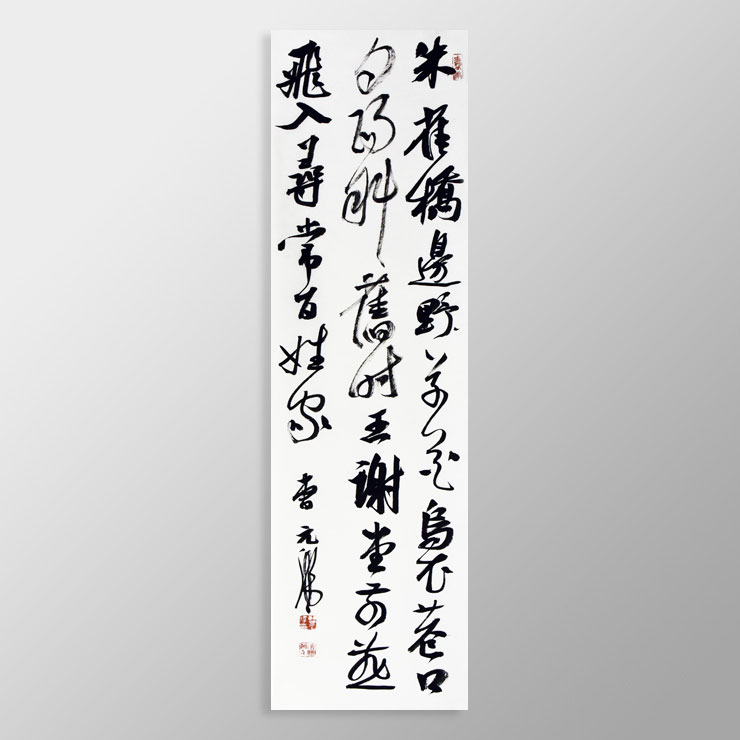 朱雀橋邊野草花烏衣巷口
夕陽斜舊時王謝堂前燕
飛入尋常百姓家
曹元